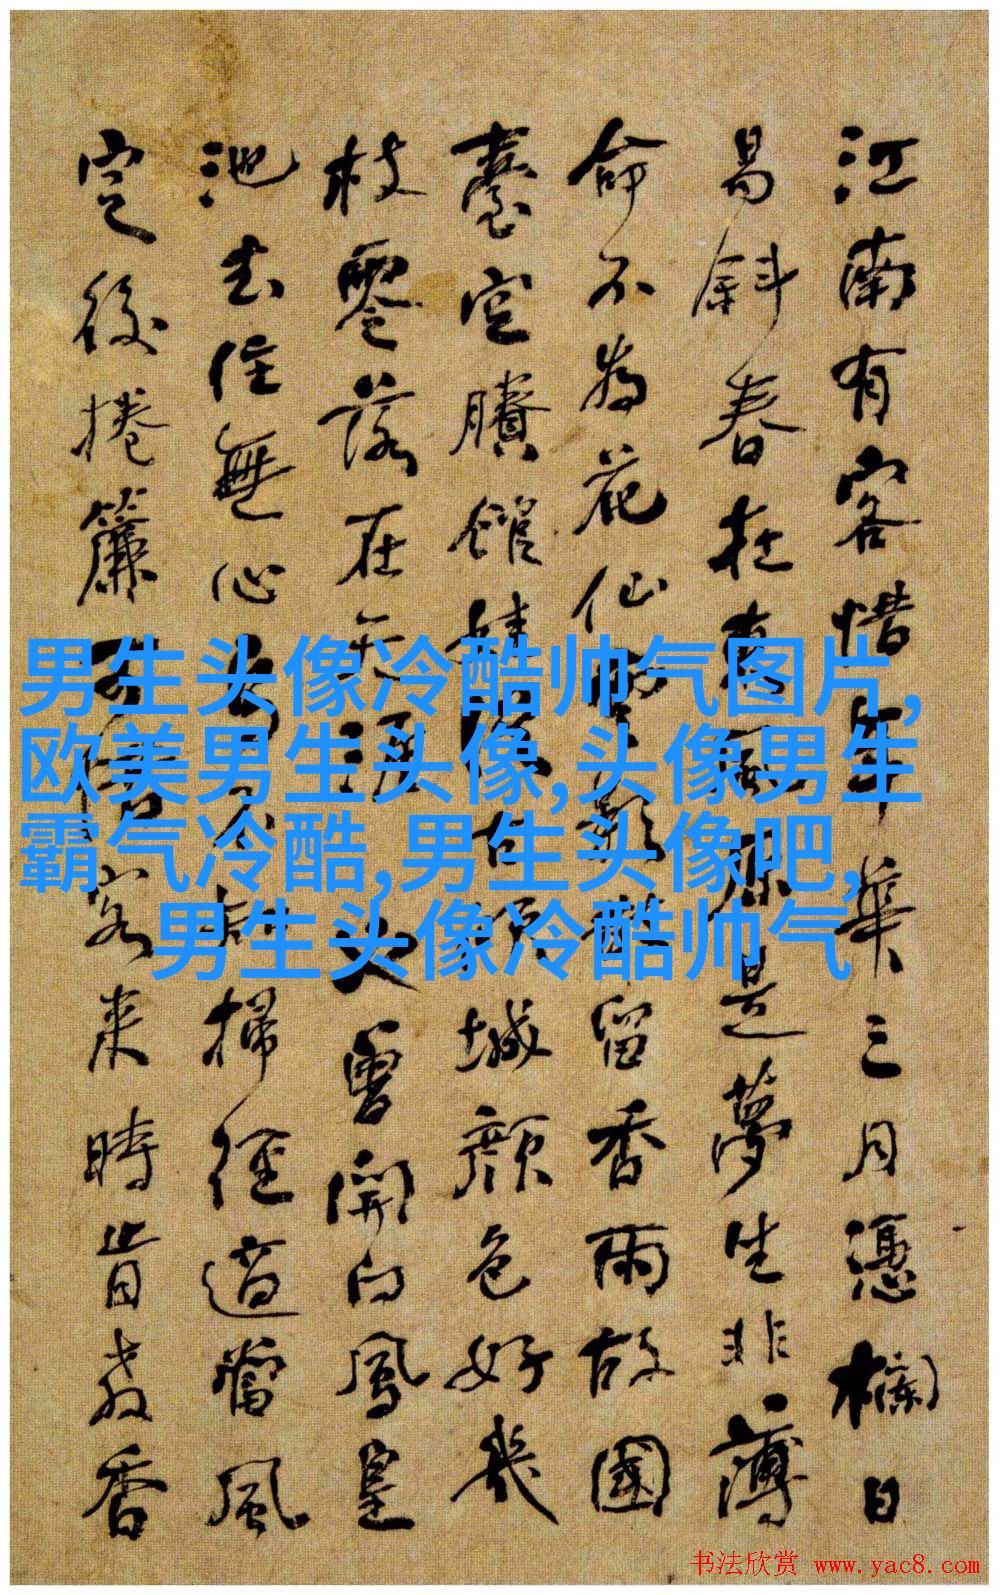 江南有客惜年華三月憑欄日
易斜春在東風原是夢生非薄
命不為花仙影留香兩故國
臺空賸館娃古傾城顏色好幾
枝零落在天涯曾開向鳳皇
池去住無心知掃徑適當風
定後捲簾客來時肯教香
男生头像冷酷帅气图片,
欧美男生头像,头像男生
霸气冷酷,男生头像吧,
男生头像冷酷帅气
书法欣赏 www.yac8.com